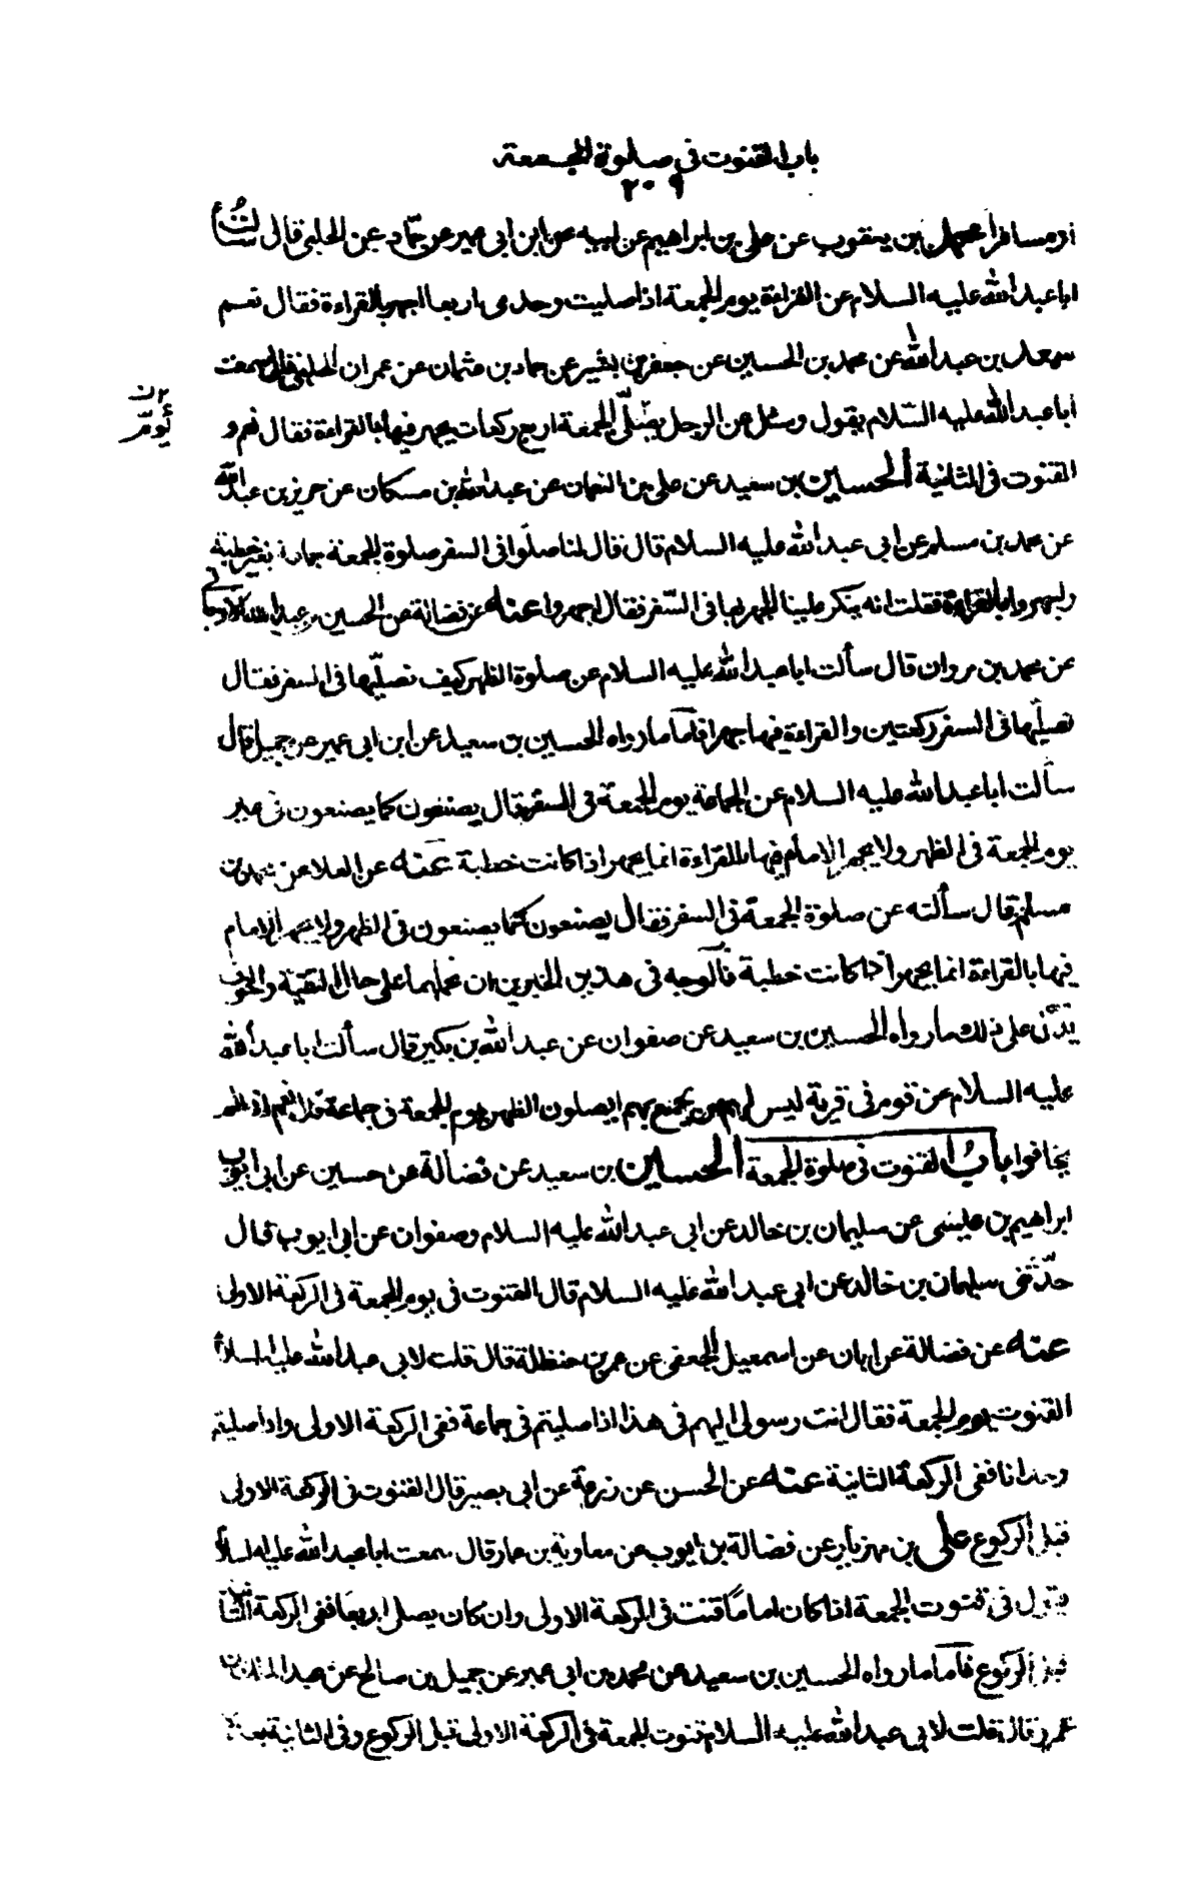 باب القنوت في صلوة الجمعة
٢٠٩
او مسافرا محمد بن يعقوب عن علي بن ابراهيم عن ابيه عن ابن ابي عمير عن حمّاد عن الحلبي قال سألت
ابا عبد الله عليه السلام عن القراءة يوم الجمعة اذا صليت وحدى اربعا اجهر بالقراءة فقال نعم
سعد بن عبد الله عن محمد بن الحسين عن جعفر بن بشير عن حماد بن عثمان عن عمران الحلبي قال سمعت
ابا عبد الله عليه السّلام يقول وسئل عن الرجل يصلّي الجمعة اربع ركعات يجهر فيها بالقراءة فقال نعم و
القنوت في الثانية الحسين بن سعيد عن علي بن النعمان عن عبد الله بن مسكان عن حريز بن عبد الله
عن محمد بن مسلم عن ابي عبد الله عليه السلام قال قال لنا صلّوا في السفر صلوة الجمعة جماعة بغير خطبة
واجهروا بالقراءة فقلت انه ينكر علينا الجهر بها في السّفر فقال اجهروا عنه عن فضالة عن الحسين بن عبد الله الارجاني
عن محمد بن مروان قال سألت ابا عبد الله عليه السلام عن صلوة الظهر كيف نصلّيها في السفر فقال
تصلّيها في السفر ركعتين والقراءة فيها جهرا فأما ما رواه الحسين بن سعيد عن ابن ابي عمير عن جميل قال
سألت ابا عبد الله عليه السلام عن الجماعة يوم الجمعة في السفر فقال يصنعون كما يصنعون في غير
يوم الجمعة في الظهر ولا يجهر الامام فيها بالقراءة انما يجهر اذا كانت خطبة عنه عن العلا عن محمد بن
مسلم قال سألته عن صلوة الجمعة في السفر فقال يصنعون كما يصنعون في الظهر ولا يجهر الامام
فيها بالقراءة انما يجهر اذا كانت خطبة فالوجه في هذين الخبرين ان نحملهما على حال التقيّة والخوف
يدّل على ذلك ما رواه الحسين بن سعيد عن صفوان عن عبد الله بن بكير قال سألت ابا عبد الله
عليه السلام عن قوم في قرية ليس لهم من يجمع بهم ايصلون الظهر يوم الجمعة في جماعة قال نعم اذا لم
يخافوا باب القنوت في صلوة الجمعة الحسين بن سعيد عن فضالة عن حسين عن ابي ايوب
ابراهيم بن عيسى عن سليمان بن خالد عن ابي عبد الله عليه السلام وصفوان عن ابي ايوب قال
حدّثني سليمان بن خالد عن ابي عبد الله عليه السلام قال القنوت في يوم الجمعة في الركعة الاولى
عنه عن فضالة عن ابان عن اسمعيل الجعفي عن عمر بن حنظلة قال قلت لابي عبد الله عليه السلام
القنوت يوم الجمعة فقال انت رسولي اليهم في هذا اذا صليتم في جماعة ففي الركعة الاولى واذا صليتم
وحدانا ففي الركعة الثانية عنه عن الحسن عن زرعة عن ابي بصير قال القنوت في الركعة الاولى
قبل الركوع علي بن مهزيار عن فضالة بن ايوب عن معاوية بن عمار قال سمعت ابا عبد الله عليه السلام
يقول في قنوت الجمعة اذا كان امامًا قنت في الركعة الاولى وان كان يصلي اربعًا ففي الركعة الثانية
قبل الركوع فأما ما رواه الحسين بن سعيد عن محمد بن ابي عمير عن جميل بن صالح عن عبد الملك بن
عمرو قال قلت لابي عبد الله عليه السلام قنوت الجمعة في الركعة الاولى قبل الركوع وفي الثانية بعد